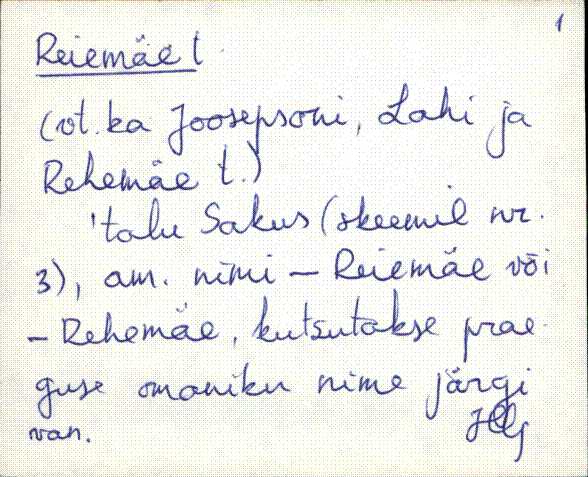 1
Reiemäe t.
(vt. ka Joosepsoni, Lahi ja
Rehemäe t.)
'talu Sakus (skeemil nr.
3), am. nimi - Reiemäe või
- Rehemäe, kutsutakse prae-
guse omaniku nime järgi
van.